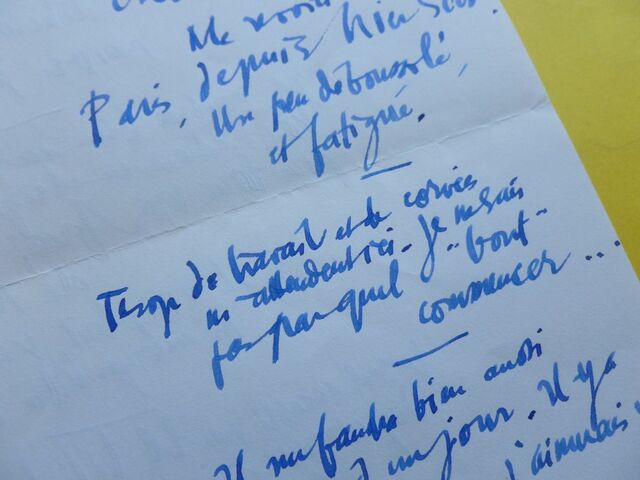 Me voici
Paris, depuis hier soir.
Un peu déboussolé,
et fatigué.
Trop de travail et de corvées
m'attendent ici. Je ne sais
pas par quel "bout"
commencer...
Il me faudra bien aussi
un jour. Il y a
j'aimerais